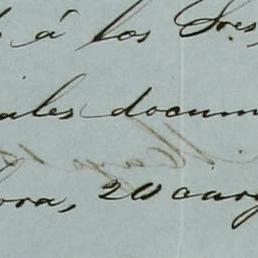 á los Sres
ales docum
ora, 20 carg